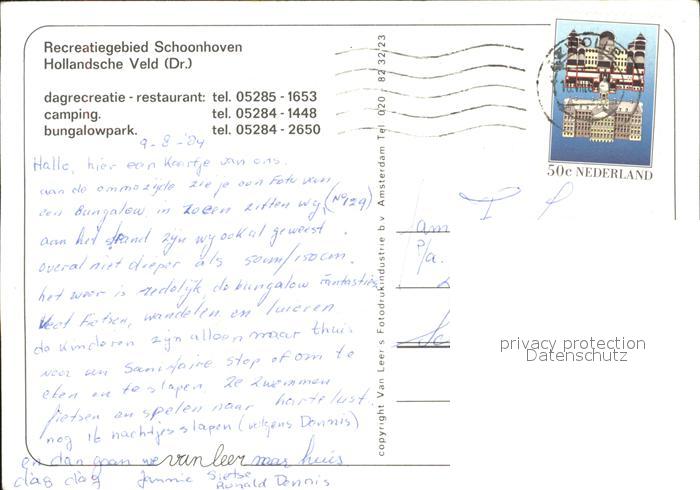 Recreatiegebied Schoonhoven
Hollandsche Veld (Dr.)
dagrecreatie - restaurant: tel. 05285 - 1653
camping. tel. 05284 - 1448
bungalowpark. tel. 05284 - 2650
9-8-'84
Hallo, hier een Kaartje van ons.
aan de ommezijde zie je een Foto van
een Bungalow, in zo een zitten wy, (No 129)
aan het strand zijn wy ook al geweest.
overal niet dieper als 50cm/150cm.
het weer is redelijk, de bungalow fantasties
Veel Fietsen, wandelen en luieren
de kinderen zijn alleen maar thuis
voor een Sanitaire stop of om te
eten en te slapen. Ze zwemmen
fietsen en spelen naar hartelust.
nog 16 nachtjes slapen (volgens Dennis)
en dan gaan we van leer naar huis
dag dag Jannie Sietse
Ronald Dennis
copyright Van Leer's Fotodrukindustrie b.v. Amsterdam Tel. 020 - 82 32 23
50c NEDERLAND
Fam
P/a.
privacy protection
Datenschutz